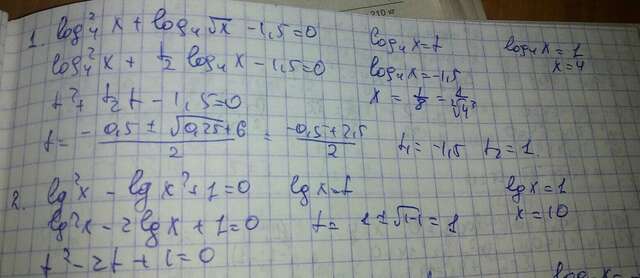 1. log₄²x + log₄√x - 1,5 = 0
log₄²x + 1/2 log₄x - 1,5 = 0
t² + 1/2 t - 1,5 = 0
t = (-0,5 ± √(0,25 + 6))/2 = (-0,5 ± 2,5)/2
t₁ = -1,5 t₂ = 1.
log₄x = t
log₄x = -1,5
x = 1/8
log₄x = 1
x = 4
2. lg²x - lg x² + 1 = 0
lg²x - 2lg x + 1 = 0
t² - 2t + 1 = 0
lg x = t
t = 1 ± √1-1 = 1
lg x = 1
x = 10